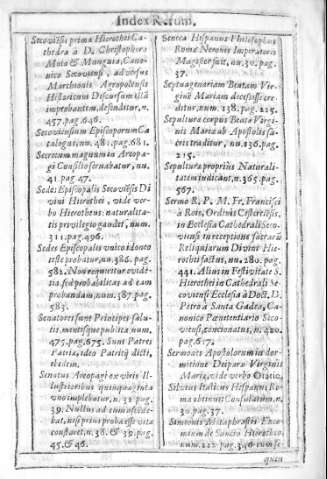 Index Rerum.
Secoviēsis prima Hierothei Ca-
thedra à D. Christophoro
Moia & Munguia, Cano-
nico Secoviensi, adversus
Marchionis Agropolensis
Historicum Discursum illā
improbantem, defenditur, n.
457. pag. 646.
Secoviensium Episcoporum Ca-
talogus, n. 481. pag. 681.
Secretum magnum in Areopa-
gi Consilio servabatur, nu.
41. pag. 47.
Sedes Episcopalis Secoviēsis Di
vini Hierothei, vide ver-
bo Hierotheus: naturalita-
tis privilegio gaudet, num.
311. pag. 496.
Sedes Episcopalis unico idoneo
teste probatur, nu. 386. pag.
582. Non requiritur evidē-
tia, sed probabilitas ad eam
probandam, num. 387. pag.
583.
Senatores sunt Principes salu-
tis, mentesque publicæ num.
477. pag. 675. Sunt Patres
Patria, ideo Patritij dicti,
ibidem.
Senatus Areopagi ex viris Il-
lustrioribus quinquaginta
uno implebatur, n. 32. pag.
39. Nullus ad eum accede-
bat, nisi prius proba esse vita
constaret, n. 38. & 39. pag.
45. & 46.
Seneca Hispanus Philosophus
Romæ Neronis Imperatoris
Magister fuit, nu. 30. pag.
37.
Septuagenariam Beatam Vir-
ginē Mariam decessisse cre-
ditur, num. 138. pag. 218.
Sepultura corpus Beatæ Virgi-
nis Mariæ ab Apostolis sa-
cris traditur, nu. 136. pag.
215.
Sepultura propriùs Naturali-
tatem indicat, n. 365. pag.
567.
Sermo R. P. M. Fr. Francisci
à Rois, Ordinis Cisterciēsis
in Ecclesia Cathedrali Seco-
viensi in receptione sacrarū
Reliquiarum Divini Hie-
rothei factus, nu. 280. pag.
441. Alius in Festivitate S.
Hierothei in Cathedrali Se-
coviensi Ecclesia à Doct. D.
Petro à Santa Gadea, Ca-
nonico Pœnitentiario Seco-
viensi, concionatus, n. 420.
pag. 617.
Sermones Apostolorum in dor-
mitione Deiparæ Virginis
Mariæ, vide verbo Oratio.
Silvius Italicus Hispanus Ro-
mæ obtinuit Consulatum, n.
30. pag. 37.
Simeonis Metaphrastis Enco-
mium de Sancto Hierotheo
num. 222. pag. 346. cum se-
quen